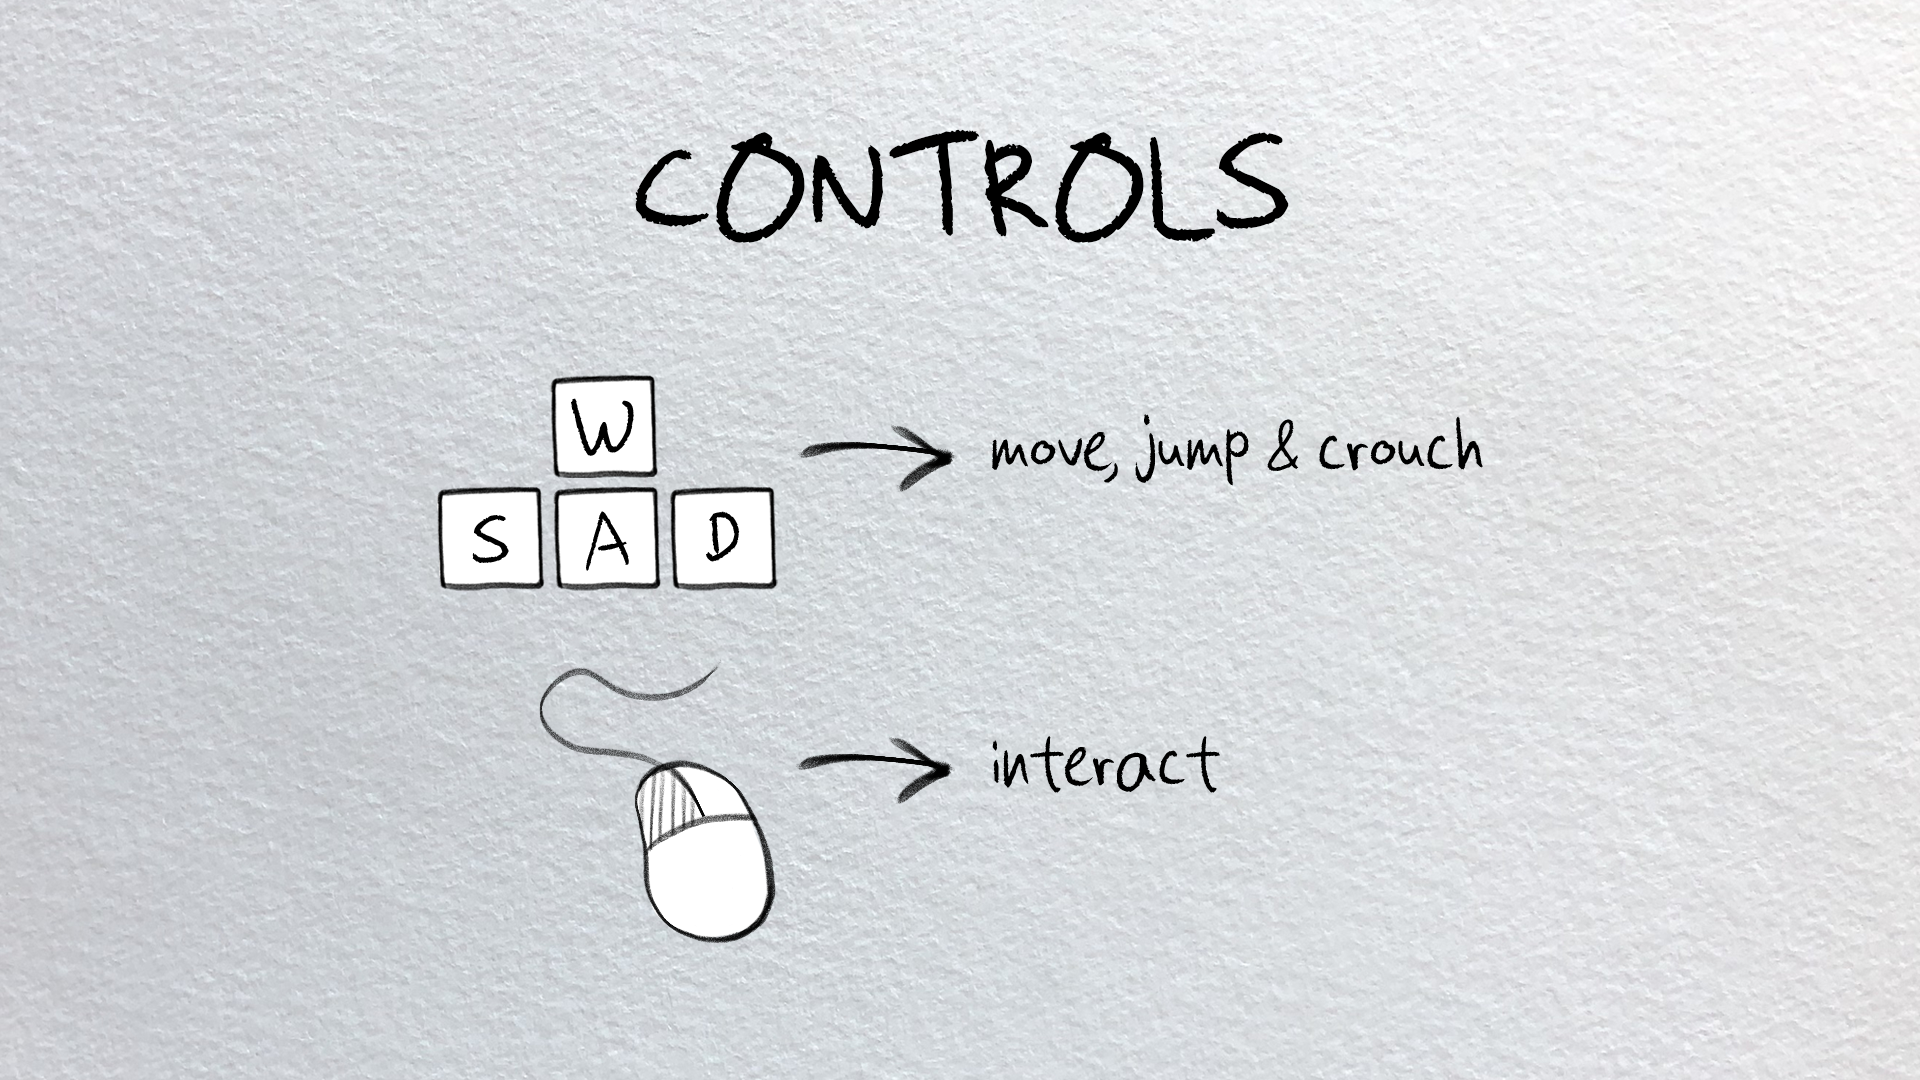 CONTROLS
W
move, jump & crouch
S A D
interact